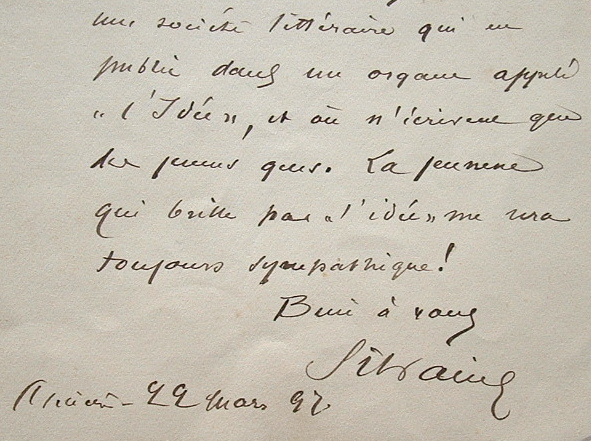 une société littéraire qui en
publie dans un organe appelé
"l'Idée", et où n'écrivent que
des jeunes gens. La jeunesse
qui brille par "l'idée" me sera
toujours sympathique!
Bien à vous
Silvain
Asnières - 22 Mars 97.